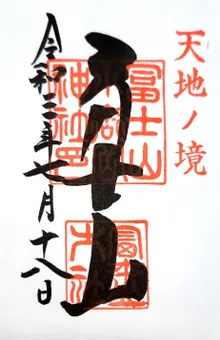 天地ノ境
冨士山
令和三年七月十八日
冨士山
神社印